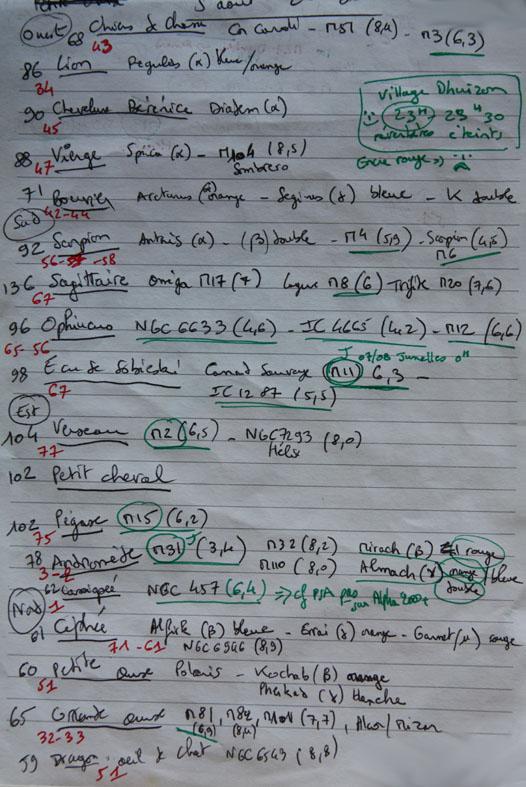 5 août
Ouest
68 Chiens de chasse Cor Caroli - M51 (8,4) - M3 (6,3)
43
86 Lion Regulus (α) bleue/orange
34
90 Chevelure Bérénice Diadem (α)
45
Village Dhuizon
23H 23H30
éteints
88 Vierge Spica (α) - M104 (8,5)
47 Sombrero
71 Bouvier Arcturus (α) orange - Seginus (γ) bleue - K double
42-44
Sud
92 Scorpion Antarès (α) - (β) double - M4 (5,9) - Scorpion (4,5)
56-57-58 M6
136 Sagittaire omega M17 (7) lagune M8 (6) Trifide M20 (7,6)
67
96 Ophiucus NGC 6633 (4,6) - IC 4665 (4,2) - M12 (6,6)
65-56
07/08 Jumelles
98 Ecu de Sobieski Canard Sauvage (M11) 6,3 -
67 IC 1287 (5,5)
Est
104 Verseau M2 (6,5) - NGC7293 (8,0)
77 Hélix
102 Petit cheval
102 Pégase M15 (6,2)
75
78 Andromède M31 (3,4) M32 (8,2) Mirach (β) rouge
3-2 M110 (8,0) Almach (γ) orange/bleue
double
62 Cassiopée NGC 457 (6,4) => cf
1
Nord
61 Céphée Alfirk (β) bleue - Errai (γ) orange - Garnet (μ) rouge
71-61 NGC 6946 (8,9)
60 Petite ourse Polaris - Kochab (β) orange
51 Phekad (γ) blanche
65 Grande ourse M81, M82, M101 (7,7), Alcor/Mizar
32-33 (6,9) (8,4)
59 Dragon oeil de chat NGC6543 (8,8)
51